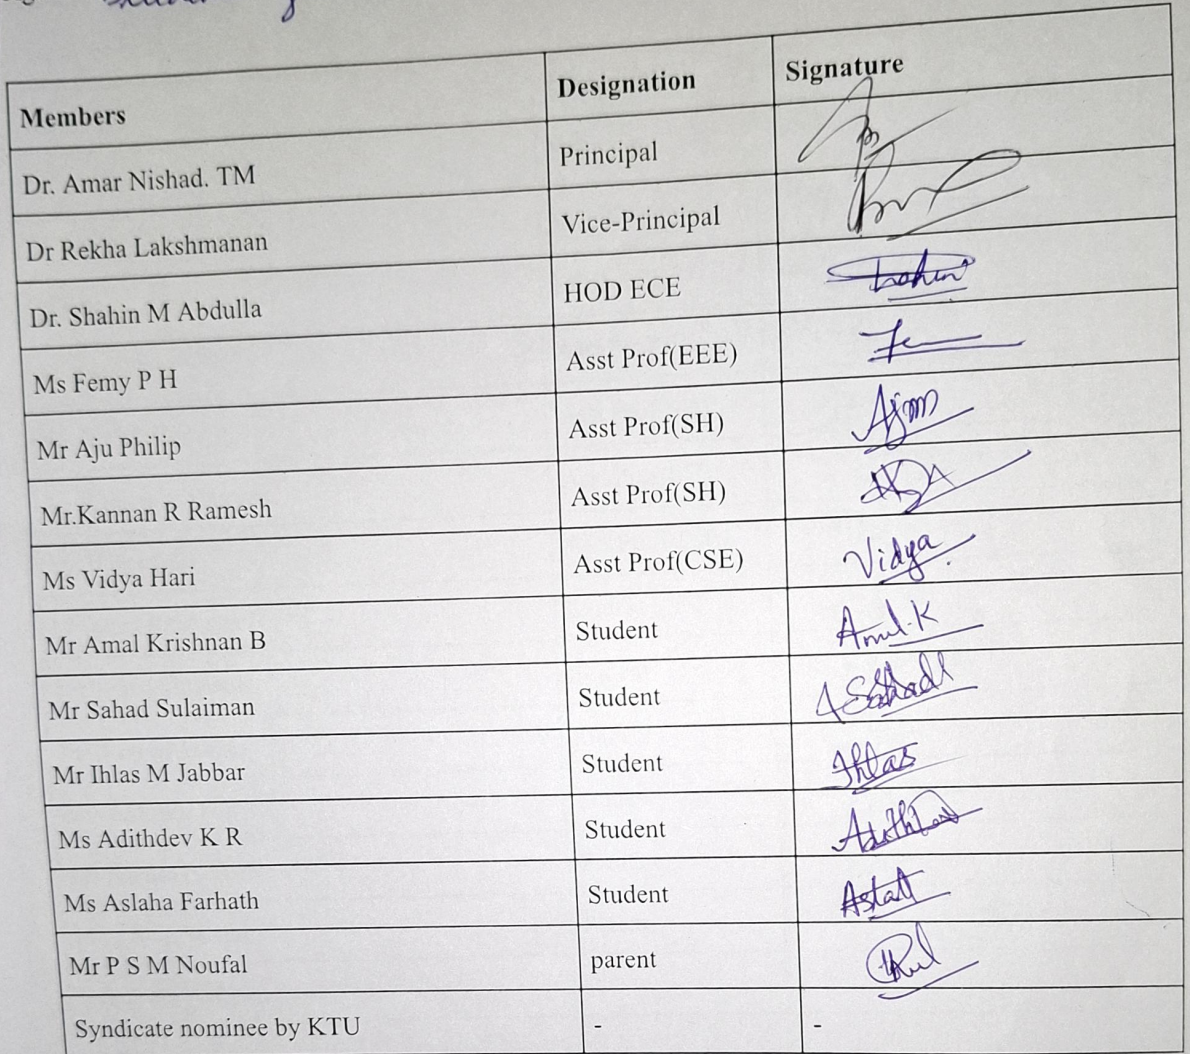 Members Designation Signature
Dr. Amar Nishad. TM Principal
Dr Rekha Lakshmanan Vice-Principal
Dr. Shahin M Abdulla HOD ECE
Ms Femy P H Asst Prof(EEE)
Mr Aju Philip Asst Prof(SH)
Mr.Kannan R Ramesh Asst Prof(SH)
Ms Vidya Hari Asst Prof(CSE) Vidya
Mr Amal Krishnan B Student Amal.K
Mr Sahad Sulaiman Student Sahad
Mr Ihlas M Jabbar Student Ihlas
Ms Adithdev K R Student
Ms Aslaha Farhath Student
Mr P S M Noufal parent
Syndicate nominee by KTU - -